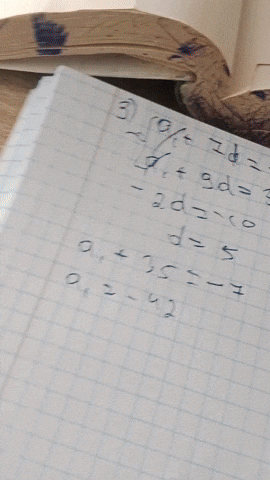 3) a₁ + 7d =
a₁ + 9d = 3
- 2d = -10
d = 5
a₁ + 35 = -7
a₁ = -42